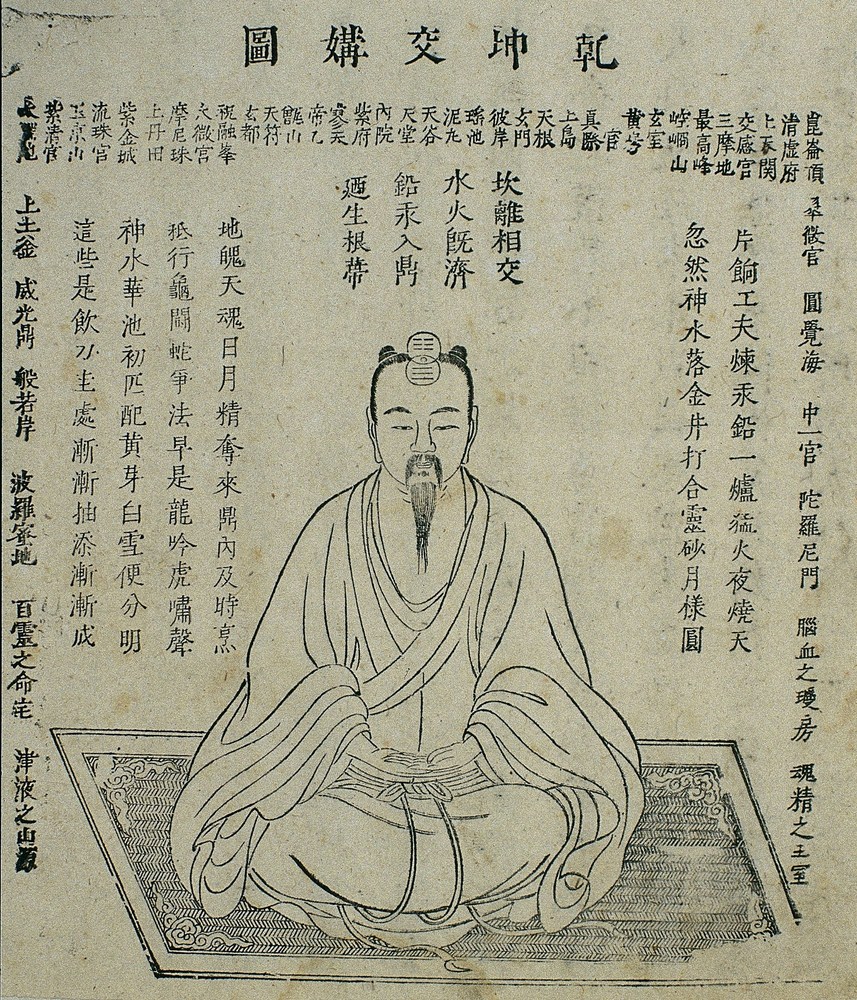 乾坤交媾圖
崑崙頂
清虛府
上天關
交感宮
三摩地
最高峰
崆峒山
玄室
黃房
宮
真際
上島
天根
玄門
彼岸
瑤池
泥丸
天谷
天堂
內院
紫府
寥天
帝乙
甑山
天符
玄都
祝融峯
太微宮
摩尼珠
上丹田
紫金城
流珠宮
玉京山
紫清宮
翠微宮 圓覺海 中一宮 陀羅尼門 腦血之瓊房 魂精之玉室
片餉工夫煉汞鉛一爐猛火夜燒天
忽然神水落金井打合靈砂月樣圓
坎離相交
水火既濟
鉛汞入鼎
迺生根蔕
地魄天魂日月精奪來鼎內及時烹
秪行龜鬪蛇爭法早是龍吟虎嘯聲
神水華池初匹配黃芽白雪便分明
這些是飲刀圭處漸漸抽添漸漸成
上土釜 威光鼎 般若岸 波羅蜜地 百靈之命宅 津液之山源